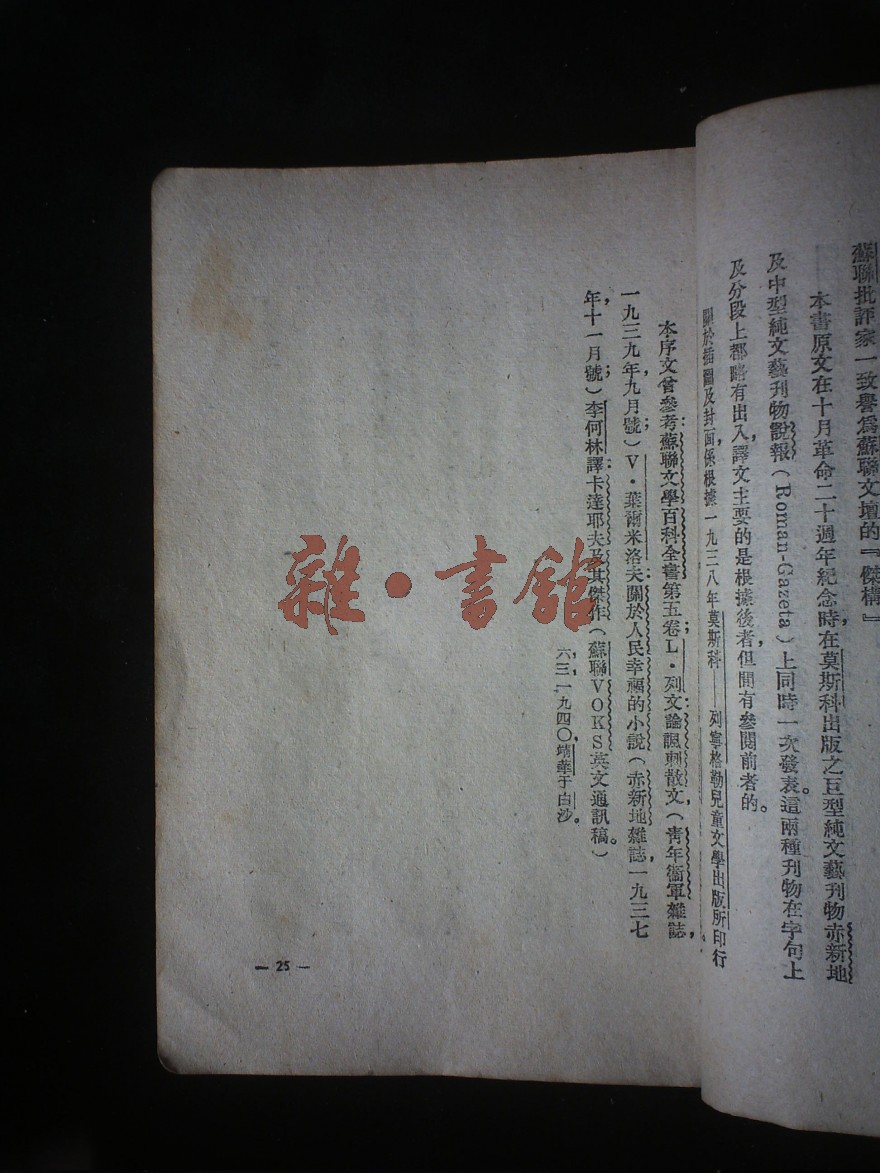 蘇聯批評家一致譽爲蘇聯文壇的『傑構』
本書原文在十月革命二十週年紀念時，在莫斯科出版之巨型純文藝刊物赤新地
及中型純文藝刊物說報（Roman-Gazeta）上同時一次發表。這兩種刊物在字句上
及分段上都略有出入，譯文主要的是根據後者，但間有參閱前者的。
關於插圖及封面，係根據一九三八年莫斯科——列寧格勒兒童文學出版所印行
本序文曾參考蘇聯文學百科全書第五卷；L·列文：論諷刺散文，（靑年衞軍雜誌，
一九三九年九月號）；V·葉爾米洛夫：關於人民幸福的小說（赤新地雜誌，一九三七
年，十一月號）；李何林譯：卡達耶夫及其傑作（蘇聯VOKS英文通訊稿。）
六，三，一九四〇，靖華于白沙。
— 25 —
雜·書館